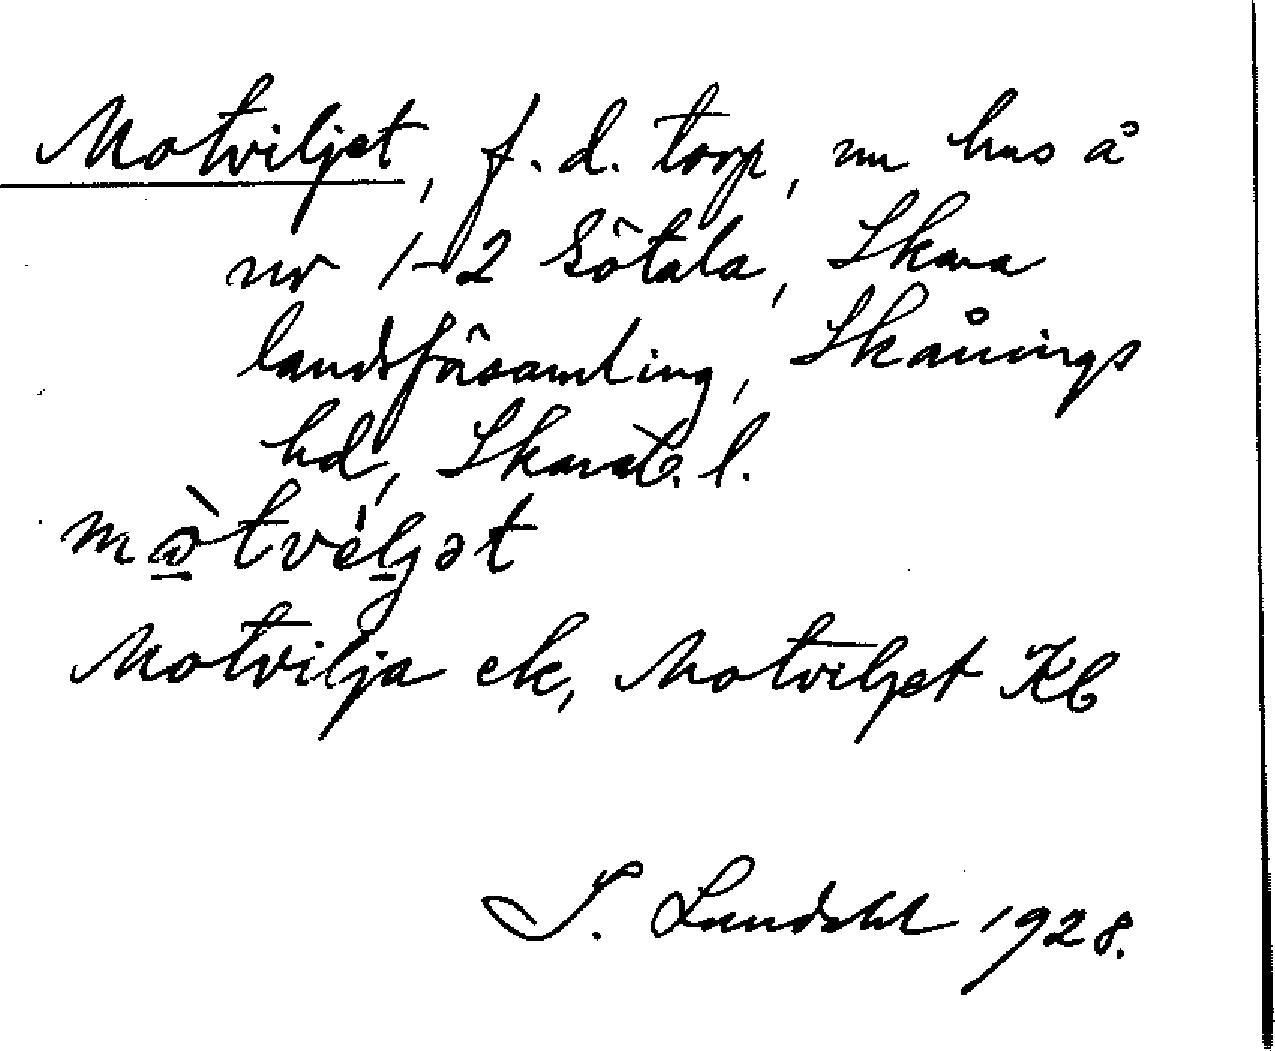 Motviljet, f. d. torp, nu hus å
nr 1-2 Götala, Skara
landsförsamling, Skånings
hd, Skarab. l.
Motvilja ek, Motviljet Kb
1928.